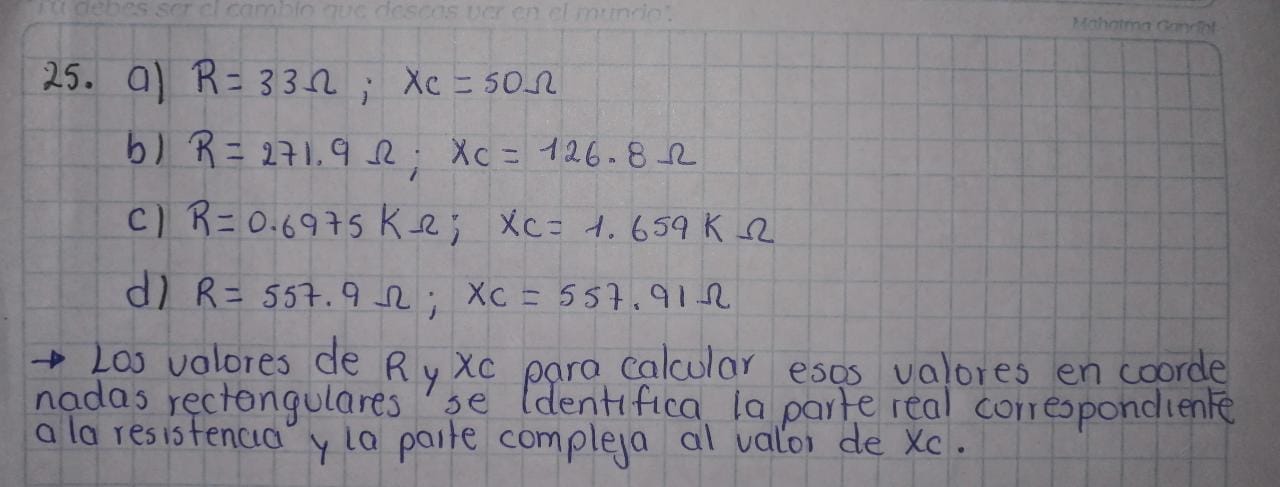 Tú debes ser el cambio que deseas ver en el mundo".
Mahatma Gandhi
25. a) R = 33Ω ; Xc = 50Ω
b) R = 271.9 Ω ; Xc = 126.8 Ω
c) R = 0.6975 KΩ ; Xc = 1.659 K Ω
d) R = 557.9 Ω ; Xc = 557.91Ω
→ Los valores de R y Xc para calcular esos valores en coorde
nadas rectangulares se identifica la parte real correspondiente
a la resistencia y la parte compleja al valor de Xc.